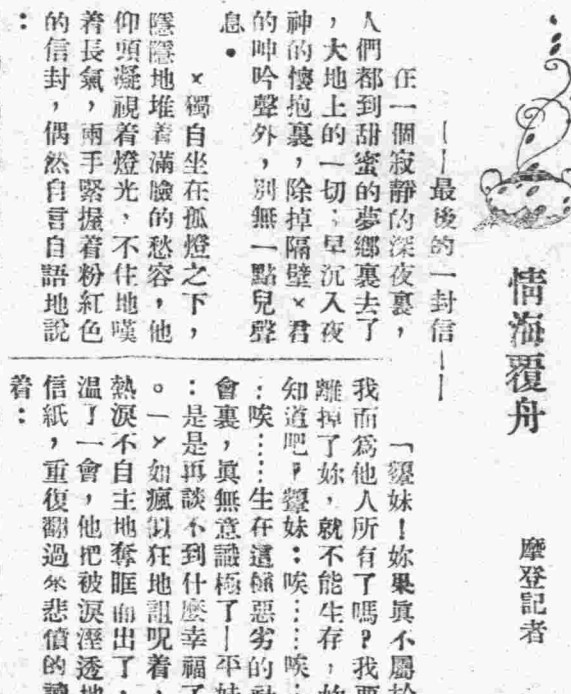 情海覆舟
摩登記者
——最後的一封信——
在一個寂靜的深夜裏,
人們都到甜蜜的夢鄉裏去了
,大地上的一切,早沉入夜
神的懷抱裏,除掉隔壁×君
的呻吟聲外,別無一點兒聲
息。
×獨自坐在孤燈之下,
隱隱地堆着滿臉的愁容,他
仰頭凝視着燈光,不住地嘆
着長氣,兩手緊握着粉紅色
的信封,偶然自言自語地說
:
「顰妹!妳果眞不屬於
我而爲他人所有了嗎?我要
離掉了妳,就不能生存,妳
知道吧?顰妹:唉……唉:
:唉……生在這極惡劣的社
會裏,眞無意識極了—平妹
:是是再談不到什麽幸福了
。—×如瘋似狂地詛咒着,
熱淚不自主地奪眶而出了,
溫了一會,他把被淚溼透地
信紙,重復翻過來悲憤的讀
着: